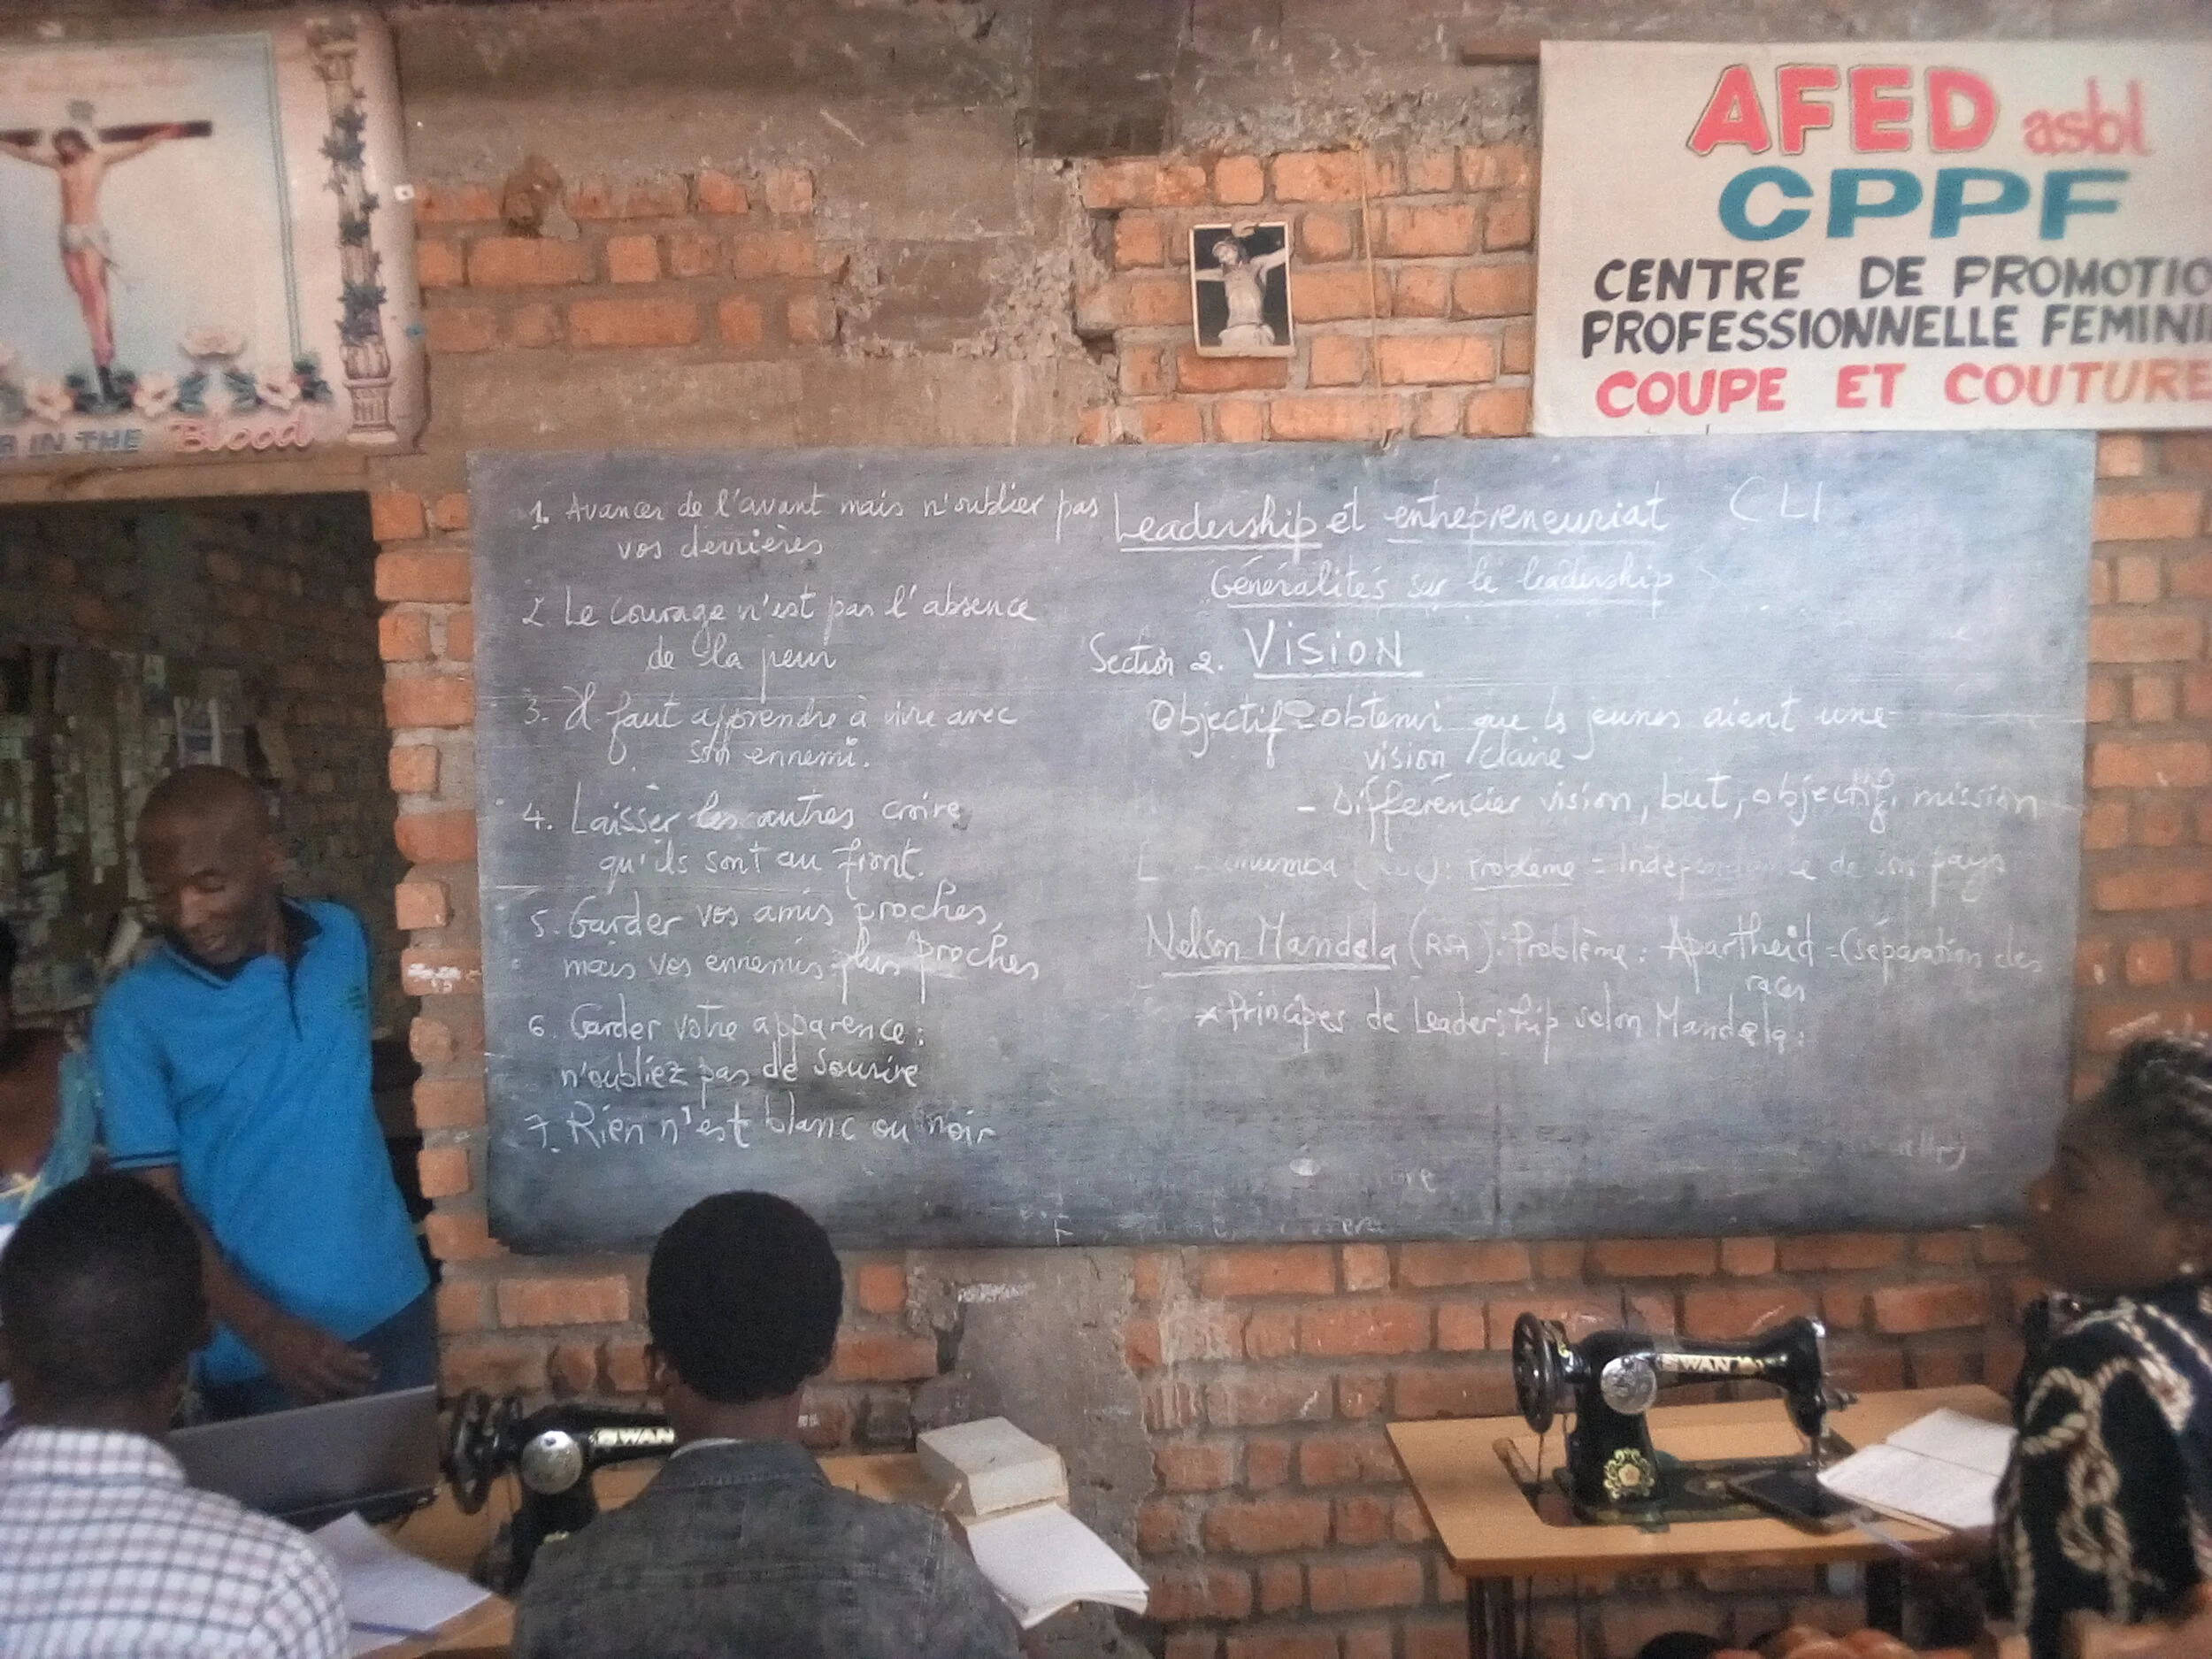 R IN THE Blood
AFED asbl
CPPF
CENTRE DE PROMOTIO
PROFESSIONNELLE FEMINI
COUPE ET COUTURE
1. Avancer de l'avant mais n'oublier pas
vos derrières
2 Le courage n'est pas l'absence
de la peur
3. Il faut apprendre à vivre avec
son ennemi.
4. Laisser les autres croire
qu'ils sont au front.
5. Garder vos amis proches,
mais vos ennemis plus proches
6. Garder votre apparence :
n'oubliez pas de sourire
7. Rien n'est blanc ou noir
Leadership et entrepreneuriat CLI
Généralités sur le leadership
Section 2. VISION
Objectif - obtenir que les jeunes aient une
vision claire
- Différencier vision, but, objectif, mission
Problème = Indépendance de son pays
Nelson Mandela (RSA) : Problème : Apartheid = (séparation des
races
* Principes de Leadership selon Mandela :
SWAN
SWAN